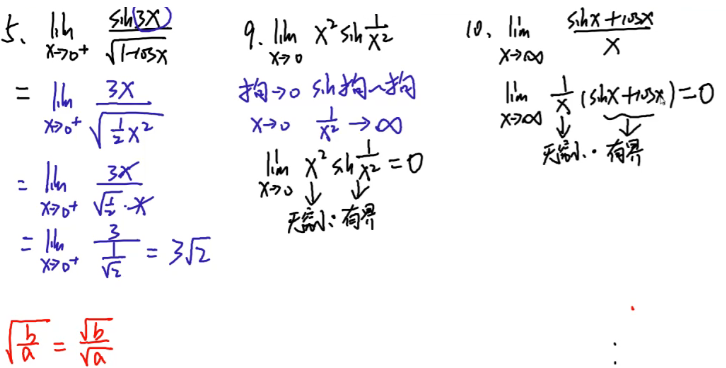 5. lim x→0⁺ sin(3x)/√(1-cosx)
= lim x→0⁺ 3x/√(½x²)
= lim x→0⁺ 3x/(√½·x)
= lim x→0⁺ 3/(1/√2) = 3√2
√(b/a) = √b/√a
9. lim x→0 x² sin 1/x²
狗→0 sin狗~狗
x→0 1/x² → ∞
lim x→0 x² sin 1/x² = 0
无穷小·有界
10. lim x→∞ (sinx+cosx)/x
lim x→∞ 1/x (sinx+cosx) = 0
无穷小·有界